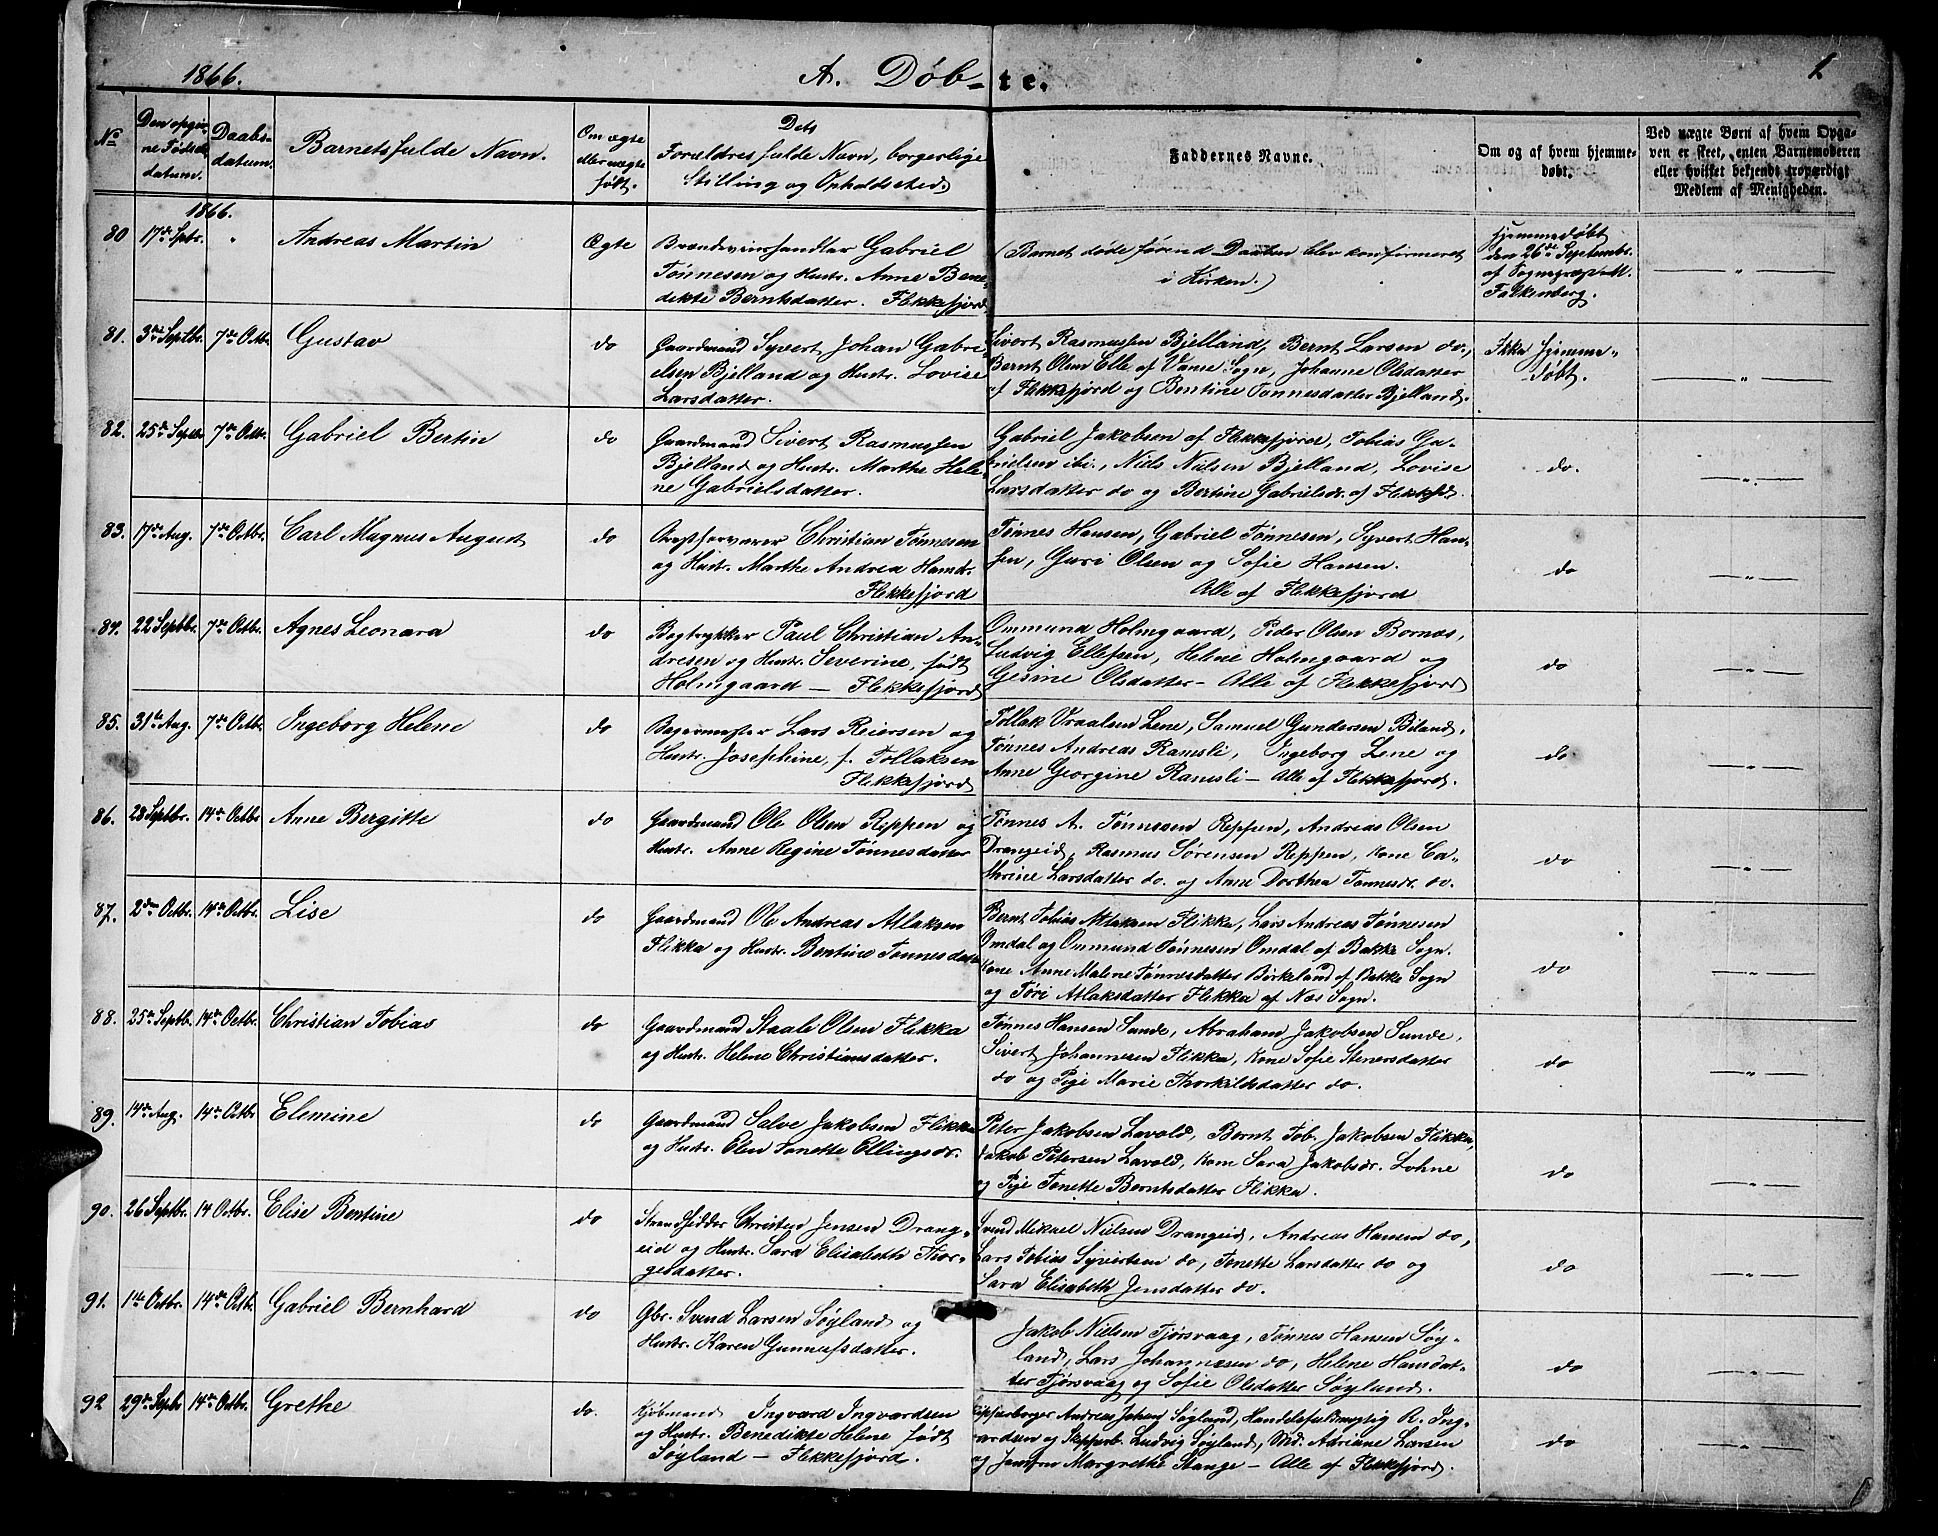 1866.
A. Döb-te.
1
No
Den opgivne Fødselsdatum.
Daabsdatum.
Barnets fulde Navn.
Om ægte eller uægte født.
Dets Forældres fulde Navn, borgerlige Stilling og Opholdssted.
Faddernes Navne.
Om og af hvem hjemmedøbt.
Ved uægte Børn af hvem Opgaven er skeet, enten Barnemoderen eller hvilket bekjendt troværdigt Medlem af Menigheden.
1866.
80 17de Sptr. " Andreas Martin Ægte
Brændeviinshandler Gabriel
Tønnesen og Hustr. Anne Bene-
dikte Berntsdatter. Flekkefjord
(Barnet døde førend Daaben blev konfirmeret
i Kirken.)
Hjemmedøbt
den 26de Septembr.
af Sognepræst
Falkenberg.
— " —
81. 3die Septbr. 7de Octbr. Gustav do
Gaardmand Syvert Johan Gabri-
elsen Bjelland og Hustr. Lovise
Larsdatter.
Sivert Rasmussen Bjelland, Bernt Larsen do.,
Bernt Olsen Elle af Vanse Sogn, Johanne Olsdatter
af Flekkefjord og Bentine Tønnesdatter Bjelland.
Ikke hjemme-
døbt.
— " —
82. 25de Septbr 7de Octbr. Gabriel Bertin do
Gaardmand Sivert Rasmussen
Bjelland og Hustr. Marthe Hele-
ne Gabrielsdatter.
Gabriel Jakobsen af Flekkefjord, Tobias Ga-
brielsen ibi., Niels Nielsen Bjelland, Lovise
Larsdatter do og Bertine Gabrielsdr. af Flekkefd.
do.
— " —
83. 17de Aug. 7de Octbr. Carl Magnus August do
Christian Tønnesen
og Hustr. Marthe Andrea Hansdr.
Flekkefjord
Tønnes Hansen, Gabriel Tønnesen, Syvert Han-
sen, Guri Olsen og Sofie Hansen.
Alle af Flekkefjord
do
— " —
84. 22 Septbr. 7de Octbr. Agnes Leonara do
Bogtrykker Paul Christian An-
dresen og Hustr. Severine, født
Holmgaard — Flekkefjord
Ommund Holmgaard, Peder Olsen Bornæs,
Ludvig Ellefsen, Helene Holmgaard og
Gesine Olsdatter — Alle af Flekkefjord
do
— " —
85. 31te Aug. 7de Octbr. Ingeborg Helene do
Bagermester Lars Reiersen og
Hustr. Josephine, f. Tollaksen
Flekkefjord
Tollak Vraalsen Lene, Samuel Gundersen Biland,
Tønnes Andreas Ramsli, Ingeborg Lene og
Anne Georgine Ramsli — Alle af Flekkefjord.
do
— " —
86. 28 Septbr. 14de Octbr Anne Bergitte do
Gaardmand Ole Olsen Reppen og
Hustr. Anne Regine Tønnesdatter
Tønnes A. Tønnesen Reppen, Andreas Olsen
Drangeid, Rasmus Sørensen Reppen, Kone Ca-
thrine Larsdatter do. og Anne Dorthea Tønnesdr. do.
do
— " —
87. 2den Octbr. 14de Octbr. Lise do
Gaardmand Ole Andreas Atlaksen
Flikka og Hustr. Bentine Tønnesdatter
Bernt Tobias Atlaksen Flikka, Lars Andreas Tønnesen
Omdal og Ommund Tønnesen Omdal af Bakke Sogn.
Kone Anne Malene Tønnesdatter Birkeland af Bakke Sogn
og Tøri Atlaksdatter Flikka af Næs Sogn.
do
— " —
88. 25de Septb. 14de Octbr. Christian Tobias do
Gaardmand Staale Olsen Flikka
og Hustr. Helene Christiansdatter.
Tønnes Hansen Sunde, Abraham Jakobsen Sunde,
Sivert Johannesen Flikka, Kone Sofie Stenersdatter
do og Pige Marie Thorkildsdatter do.
do
— " —
89. 14de Aug. 14de Octbr Elemine do
Gaardmand Salve Jakobsen Flikka
og Hustr. Elen Tonette Ellingsdr.
Peter Jakobsen Lavold, Bernt Tob. Jakobsen Flikka,
Jakob Petersen Lavold, Kone Sara Jakobsdr. Lohne
og Pige Tonette Berntsdatter Flikka.
do
— " —
90. 26 Septbr. 14 Octbr. Elise Bentine do
Strandsidder Christen Jensen Drang-
eid og Hustr. Sara Elisabeth Thor-
gesdatter.
Svend Mikael Nielsen Drangeid, Andreas Hansen do,
Lars Tobias Syvertsen do, Tonette Larsdatter do og
Sara Elisabeth Jensdatter do.
do
— " —
91. 1ste Octbr. 14de Octbr. Gabriel Bernhard do
Gbr. Svend Larsen Søyland og
Hustr. Karen Gunnufsdatter.
Jakob Nielsen Tjørsvaag, Tønnes Hansen Søy-
land, Lars Johannesen do, Helene Hansdat-
ter Tjørsvaag og Sofie Olsdatter Søyland.
do
— " —
92 29de Septb 14de Octbr. Grethe do.
Kjøbmand Ingvard Ingvardsen
og Hustr. Benedikte Helene født
Søyland — Flekkefjord.
Skipperborger Andreas Johan Søyland, Handelsfuldmægtig R. Ing-
vardsen og Skipperb. Ludvig Søyland, Md. Adriane Larsen
og Jomfru Margrethe Stange — Alle af Flekkefjord.
do
— " —